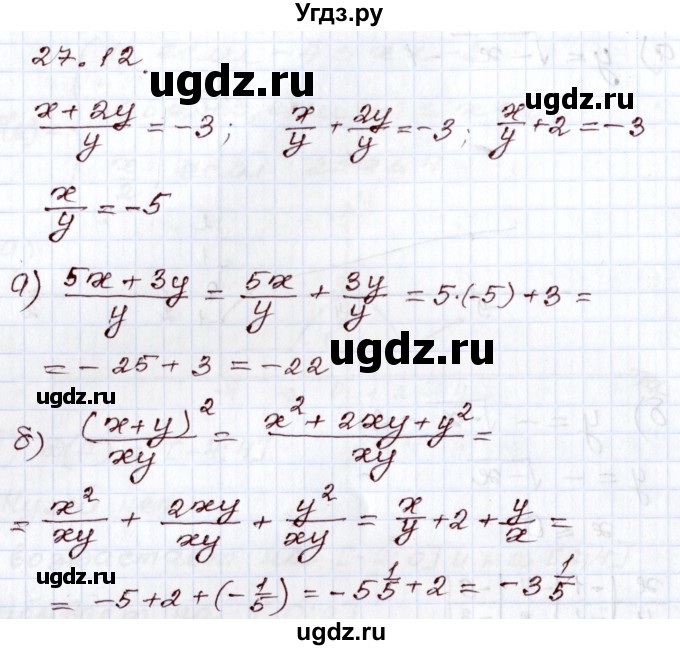 Угдз.ру
27.12.
ugdz.ru
(x+2y)/y = -3; x/y + 2y/y = -3; x/y + 2 = -3
x/y = -5
а) (5x+3y)/y = 5x/y + 3y/y = 5·(-5)+3 =
= -25+3 = -22
ugdz.ru
ugdz.ru
б) (x+y)²/xy = (x²+2xy+y²)/xy =
= x²/xy + 2xy/xy + y²/xy = x/y + 2 + y/x =
ugdz.ru
= -5+2+(-1/5) = -5 1/5 + 2 = -3 1/5
ugdz.ru